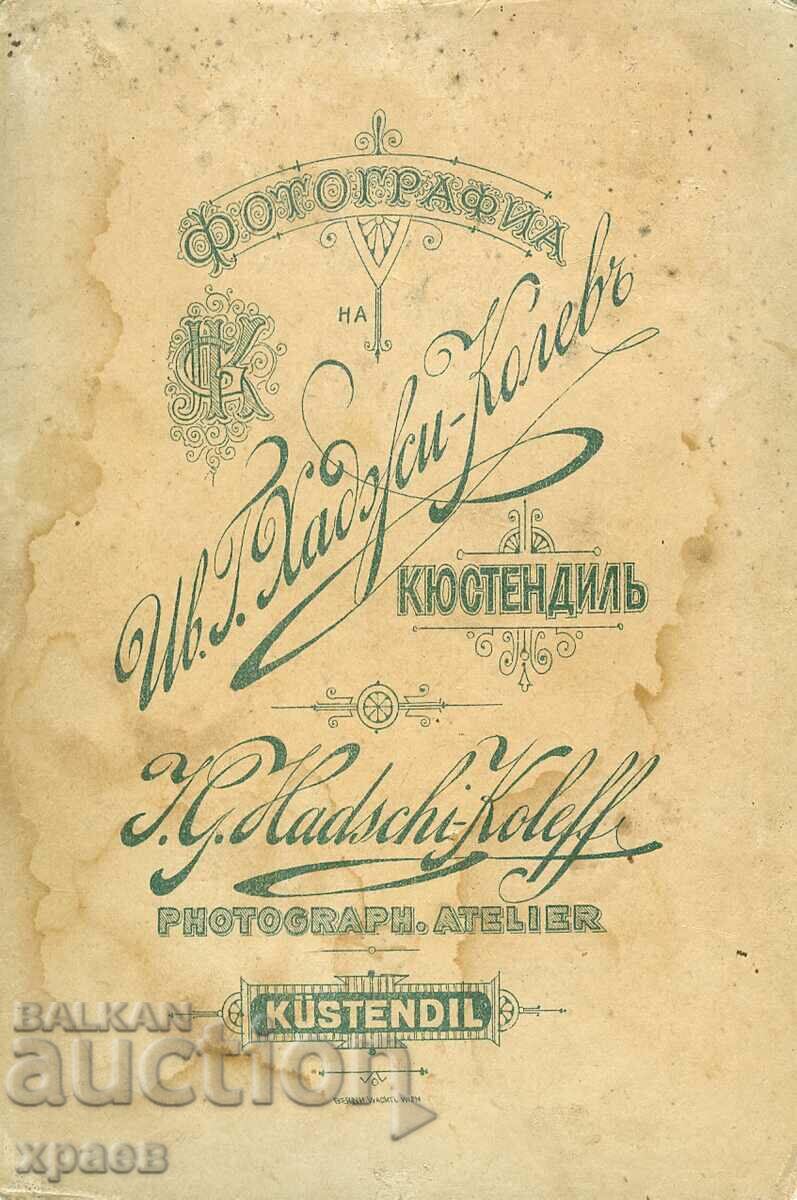 ФОТОГРАФИА
НА
Ив. Г. Хаджи-Колевъ
КЮСТЕНДИЛЬ
J. G. Hadschi-Koleff
PHOTOGRAPH. ATELIER
KÜSTENDIL
BERNH. WACHTL WIEN
BALKAN
auction
храев